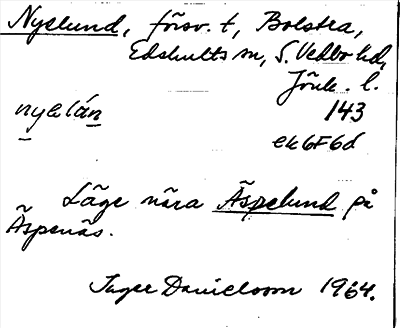 Nyelund, försv. t, Bolstra,
Edshults sn, S. Vedbo hd,
Jönk. l.
nyelún 143
ek6F6d
Läge nära Äspelund på
Äspenäs.
Inger Danielsson 1964.